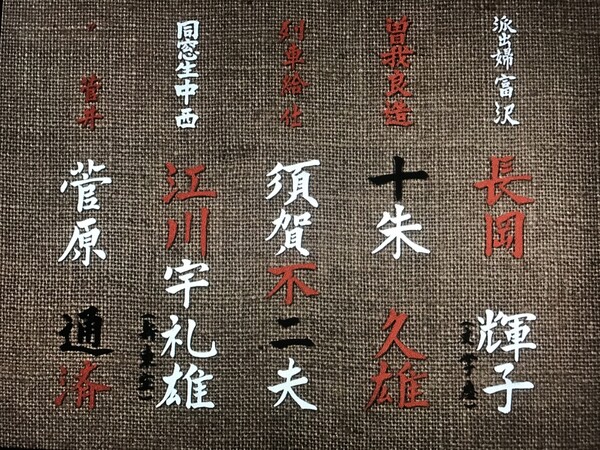 派出婦富沢
長岡輝子
(文学座)
曽我良造
十朱久雄
列車給仕
須賀不二夫
同窓生中西
江川宇礼雄
〃 菅井
菅原通済